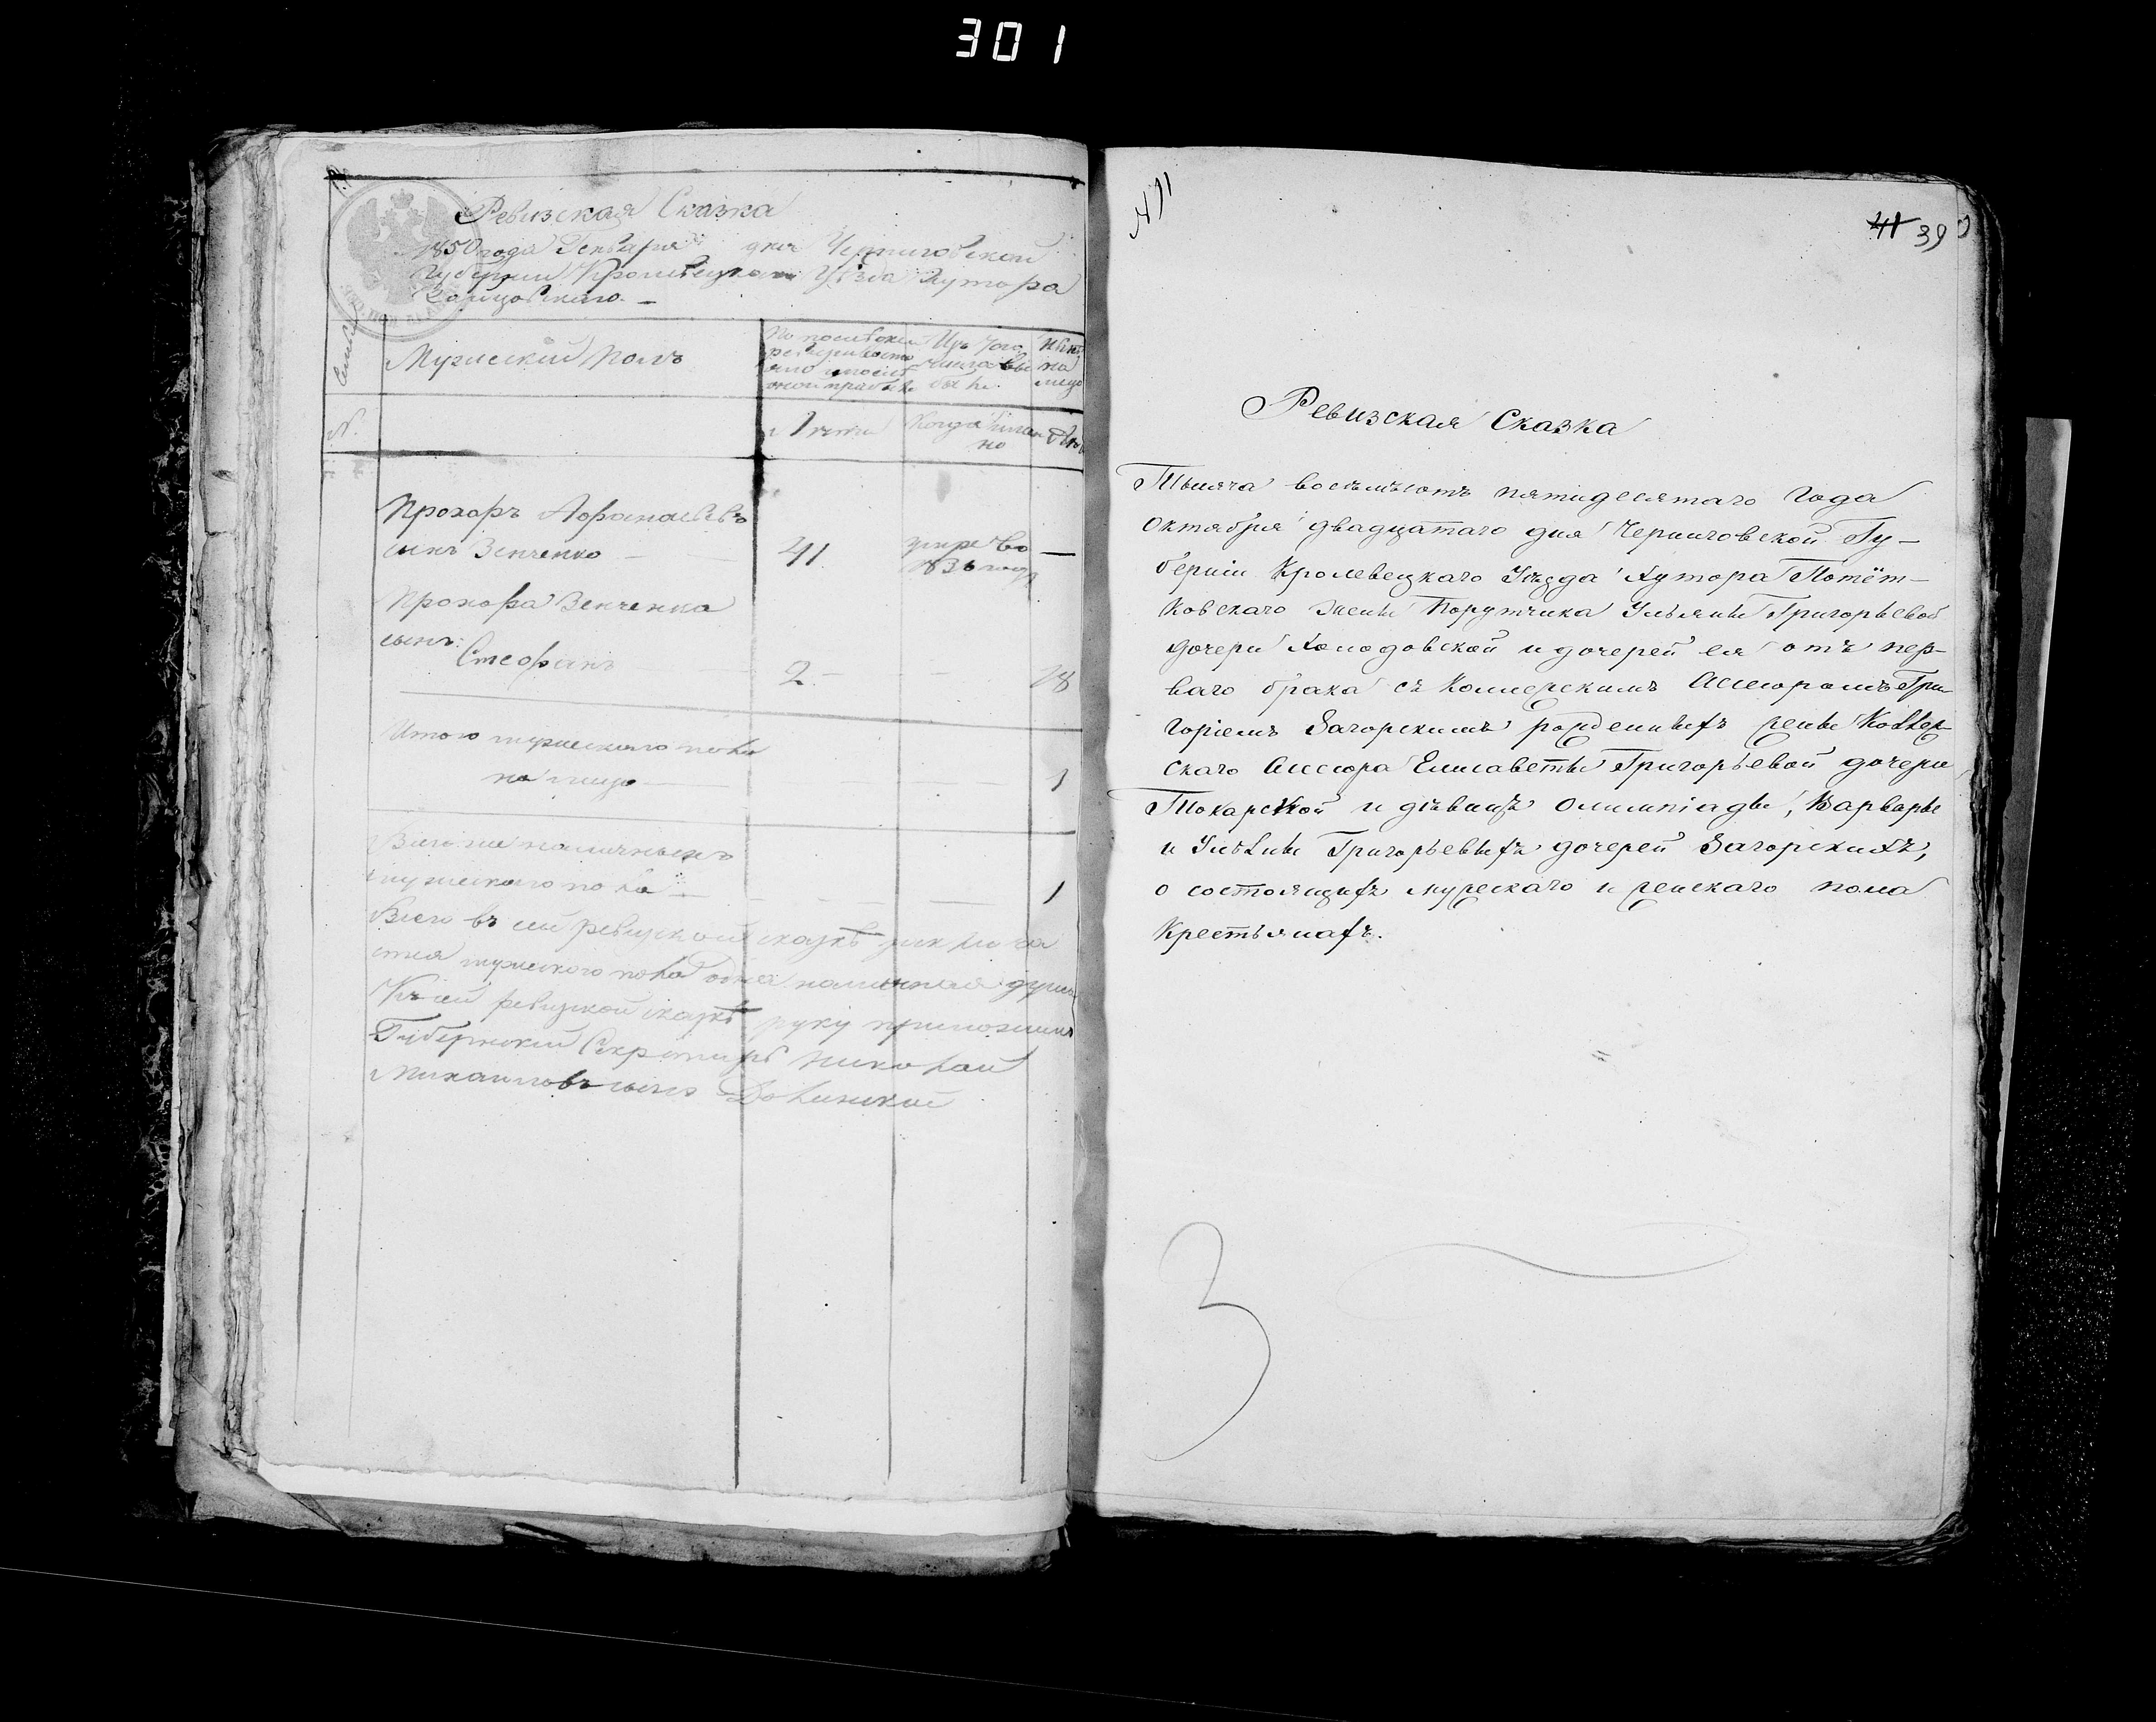 301
Ревизская Сказка
1850 года Генваря дня Черниговской
Губернии Кролевецкого Уѣзда Хутора
Мужеский полъ
По последней Изъ того Нынѣ
ревизии состо числа вы на
яло и после были лицо
оной прибыло
№.
Лета Когда имян
но
Прохоръ Афанасьевъ
сынъ Зенченко 41. умре въ —
1836 году
Прохора Зенченка
сынъ:
Стефанъ 2 — — 18
Итого мужеского пола
на лицо — 1
Всего же наличныхъ
мужеского пола — 1
Всего въ сей ревизской сказкѣ заключа
ется мужеского пола одна наличная душа
Къ сей ревизской сказкѣ руку приложилъ
Губернский Секретарь Николай
Михаиловъ сынъ
№11
41 39
Ревизская Сказка
Тысяча восемьсотъ пятидесятаго Года
Октября двадцатаго дня Черниговской Гу-
берніи Кролевецкаго Уѣзда Хутора Потёт-
ковскаго Жены Порутчика Ульяны Григорьевой
дочери Холодовской и дочерей ея отъ пер-
ваго брака съ Коллежскимъ Ассесоромъ Гри-
горіемъ Загорскимъ рожденныхъ жены Коллеж-
скаго Ассесора Елисаветы Григорьевой дочери
Токарской и дѣвицъ Олимпіады, Варвары
и Ульяны Григорьевыхъ дочерей Загорскихъ,
о состоящихъ мужескаго и женскаго пола
Крестьянахъ.
3